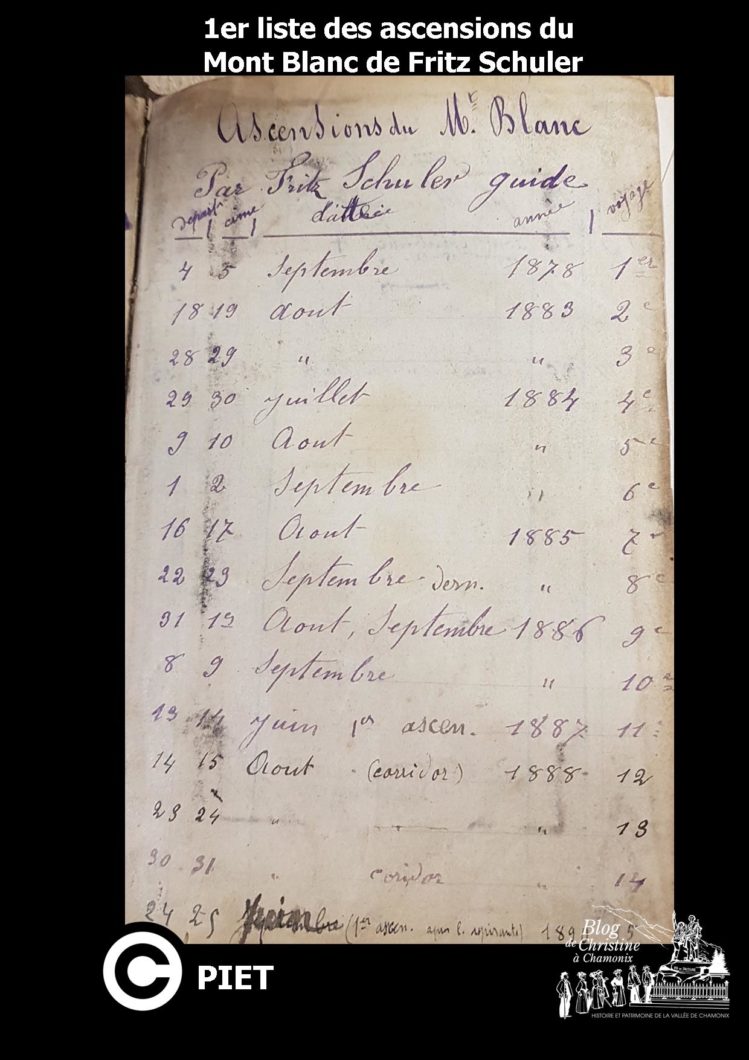 1er liste des ascensions du
Mont Blanc de Fritz Schuler
Ascensions du Mt Blanc
Par Fritz Schuler guide
départ cime datteé année voyage
4 5 Septembre 1878 1er
18 19 Aout 1883 2e
28 29 " " 3e
29 30 juillet 1884 4e
9 10 Aout " 5e
1 2 Septembre " 6e
16 17 Aout 1885 7e
22 23 Septembre dern. " 8e
31 1er Aout, Septembre 1886 9e
8 9 Septembre " 10e
13 14 juin 1er ascen. 1887 11e
14 15 Aout (corridor) 1888 12
23 24 " " " 13
30 31 " coridor " 14
24 25 juin (1er ascen. 189
C PIET
Blog de Christine à Chamonix
HISTOIRE ET PATRIMOINE DE LA VALLÉE DE CHAMONIX